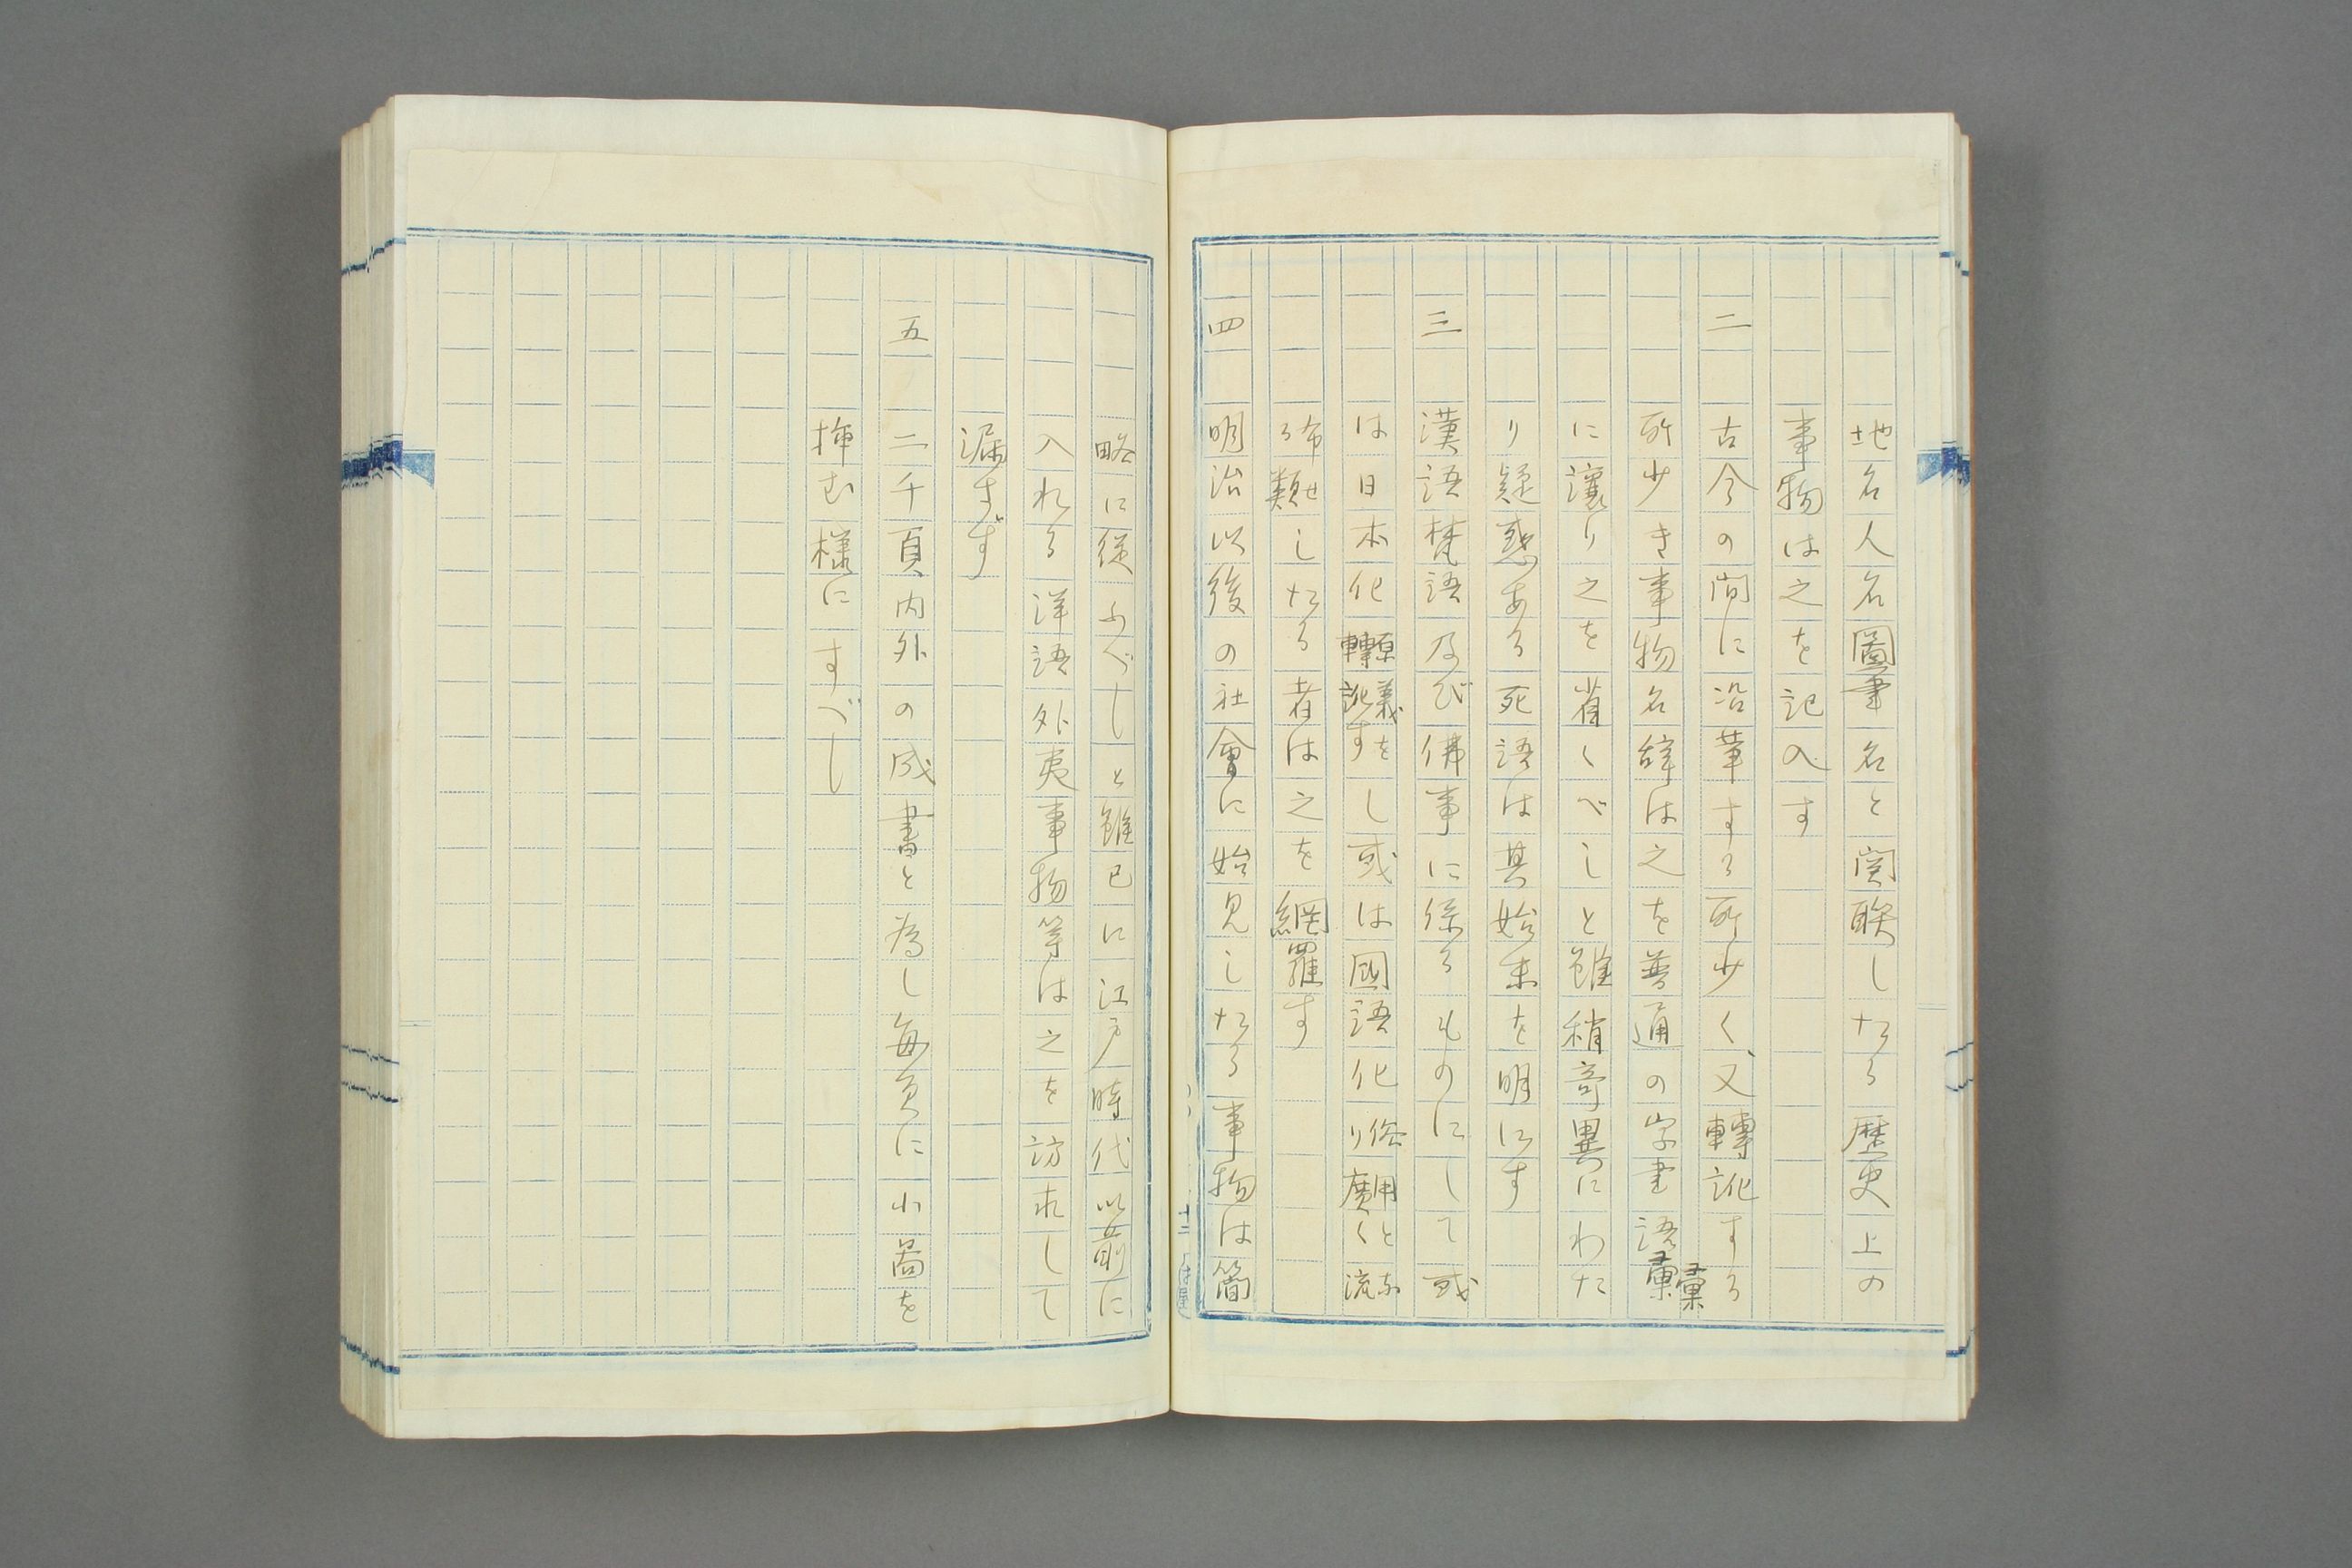 地名人名圖書名と関聯したる歴史上の
事物は之を記入す
二 古今の間に沿革する所少く、又轉訛する
所少き事物名辞は之を普通の字書語彙
彙
に讓り之を省くべしと雖稍奇異にわた
り疑惑ある死語は其始末を明にす
三 漢語梵語及び佛事に係るものにして或
は日本化 原義を轉訛す し或は國語化 俗用と なり廣く 流
布せる 類したる者は之を網羅す
四 明治以後の社會に始見したる事物は簡
略に従ふべしと雖已に江戸時代以前に
入れる洋語外夷事物等は之を訪求して
漏さず
五 二千頁内外の成書と為し毎頁に小啚を
挿む様にすべし